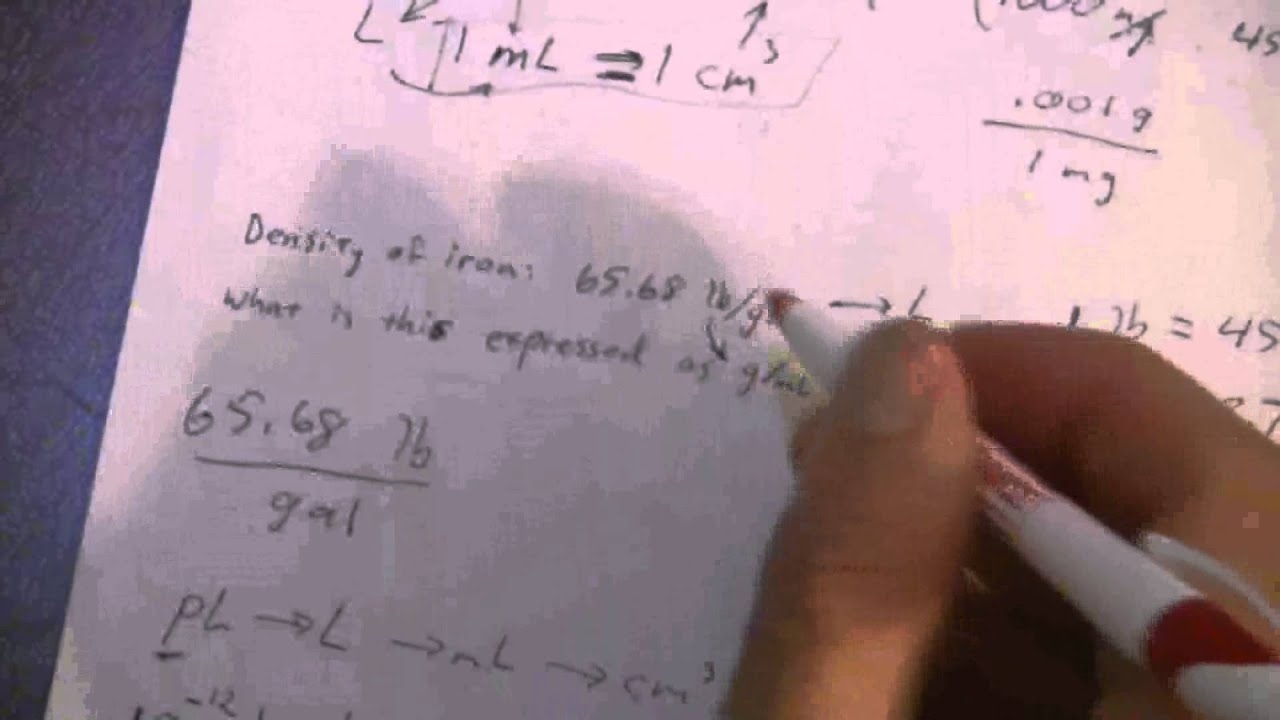 L 1 mL ≡ 1 cm³
(1000 mg . 45
.001 g
1 mg
Density of iron: 65.68 lb/g → L
1 lb ≡ 45
What is this expressed as g/mL
7
65.68 lb
gal
pL → L → mL → cm³
-12